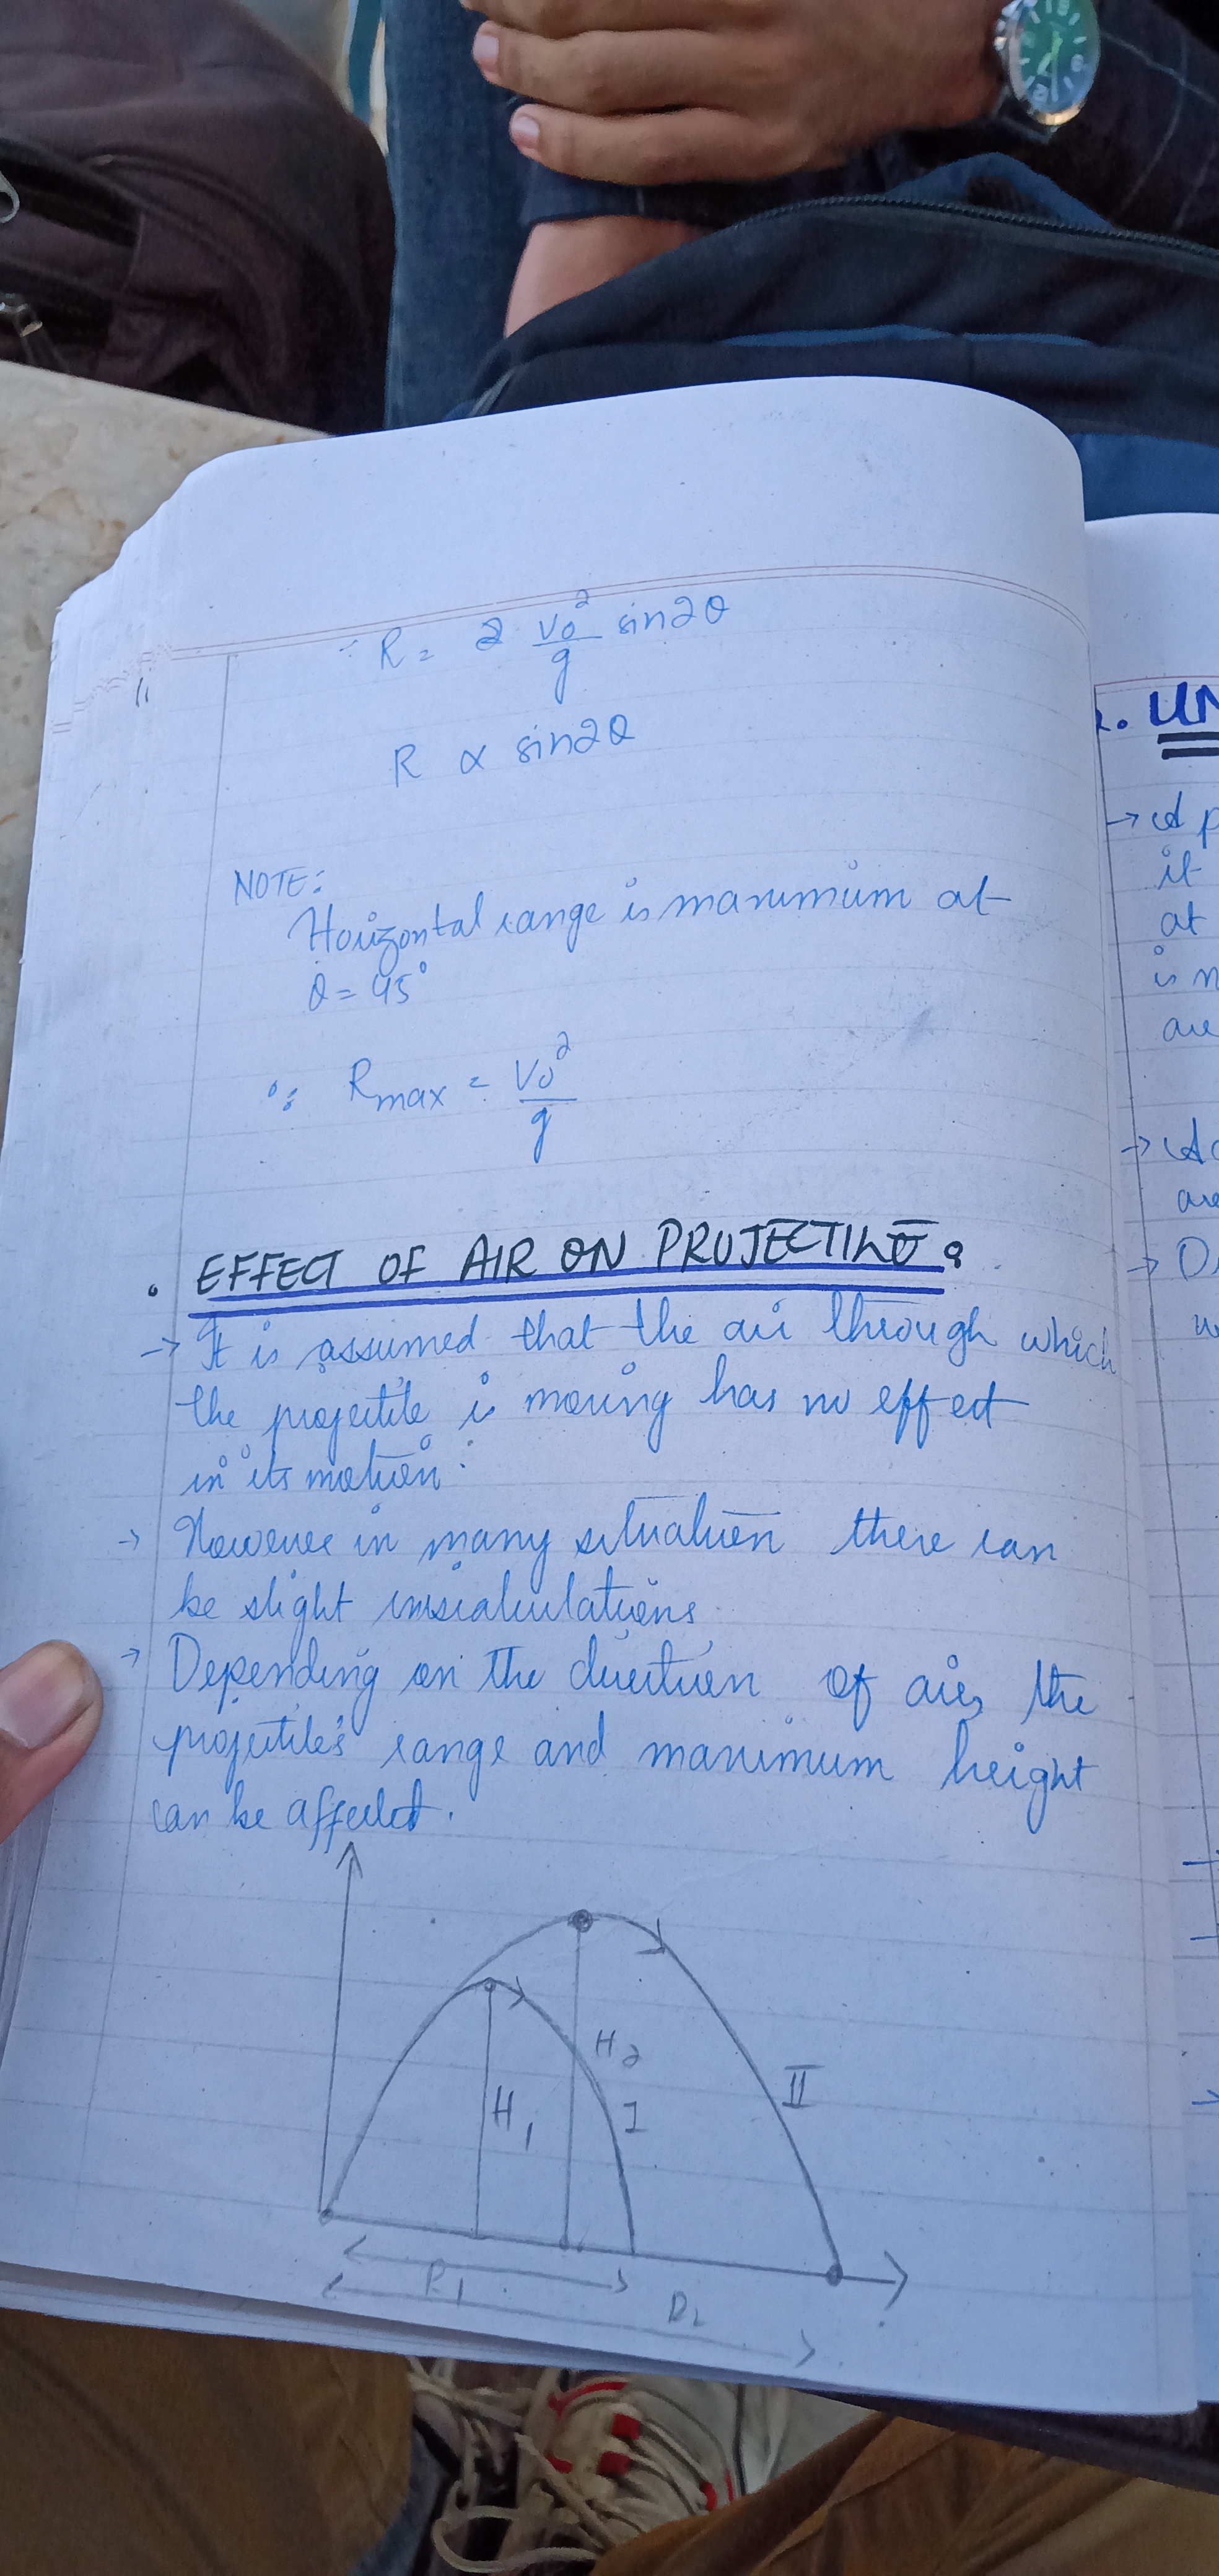 ∴ R = 2 v₀²/g sin2θ
R ∝ sin2θ
NOTE:
Horizontal range is maximum at
θ = 45°
∴ Rmax = v₀²/g
• EFFECT OF AIR ON PROJECTILE:
→ It is assumed that the air through which
the projectile is moving has no effect
in its motion.
→ However in many situation there can
be slight miscalculations
→ Depending on the direction of air, the
projectile's range and maximum height
can be affected.
H₂
II
H₁
I
R₁
R₂
. UN
→ A p
it
at
is n
are
→ Ac
are
→ D
w